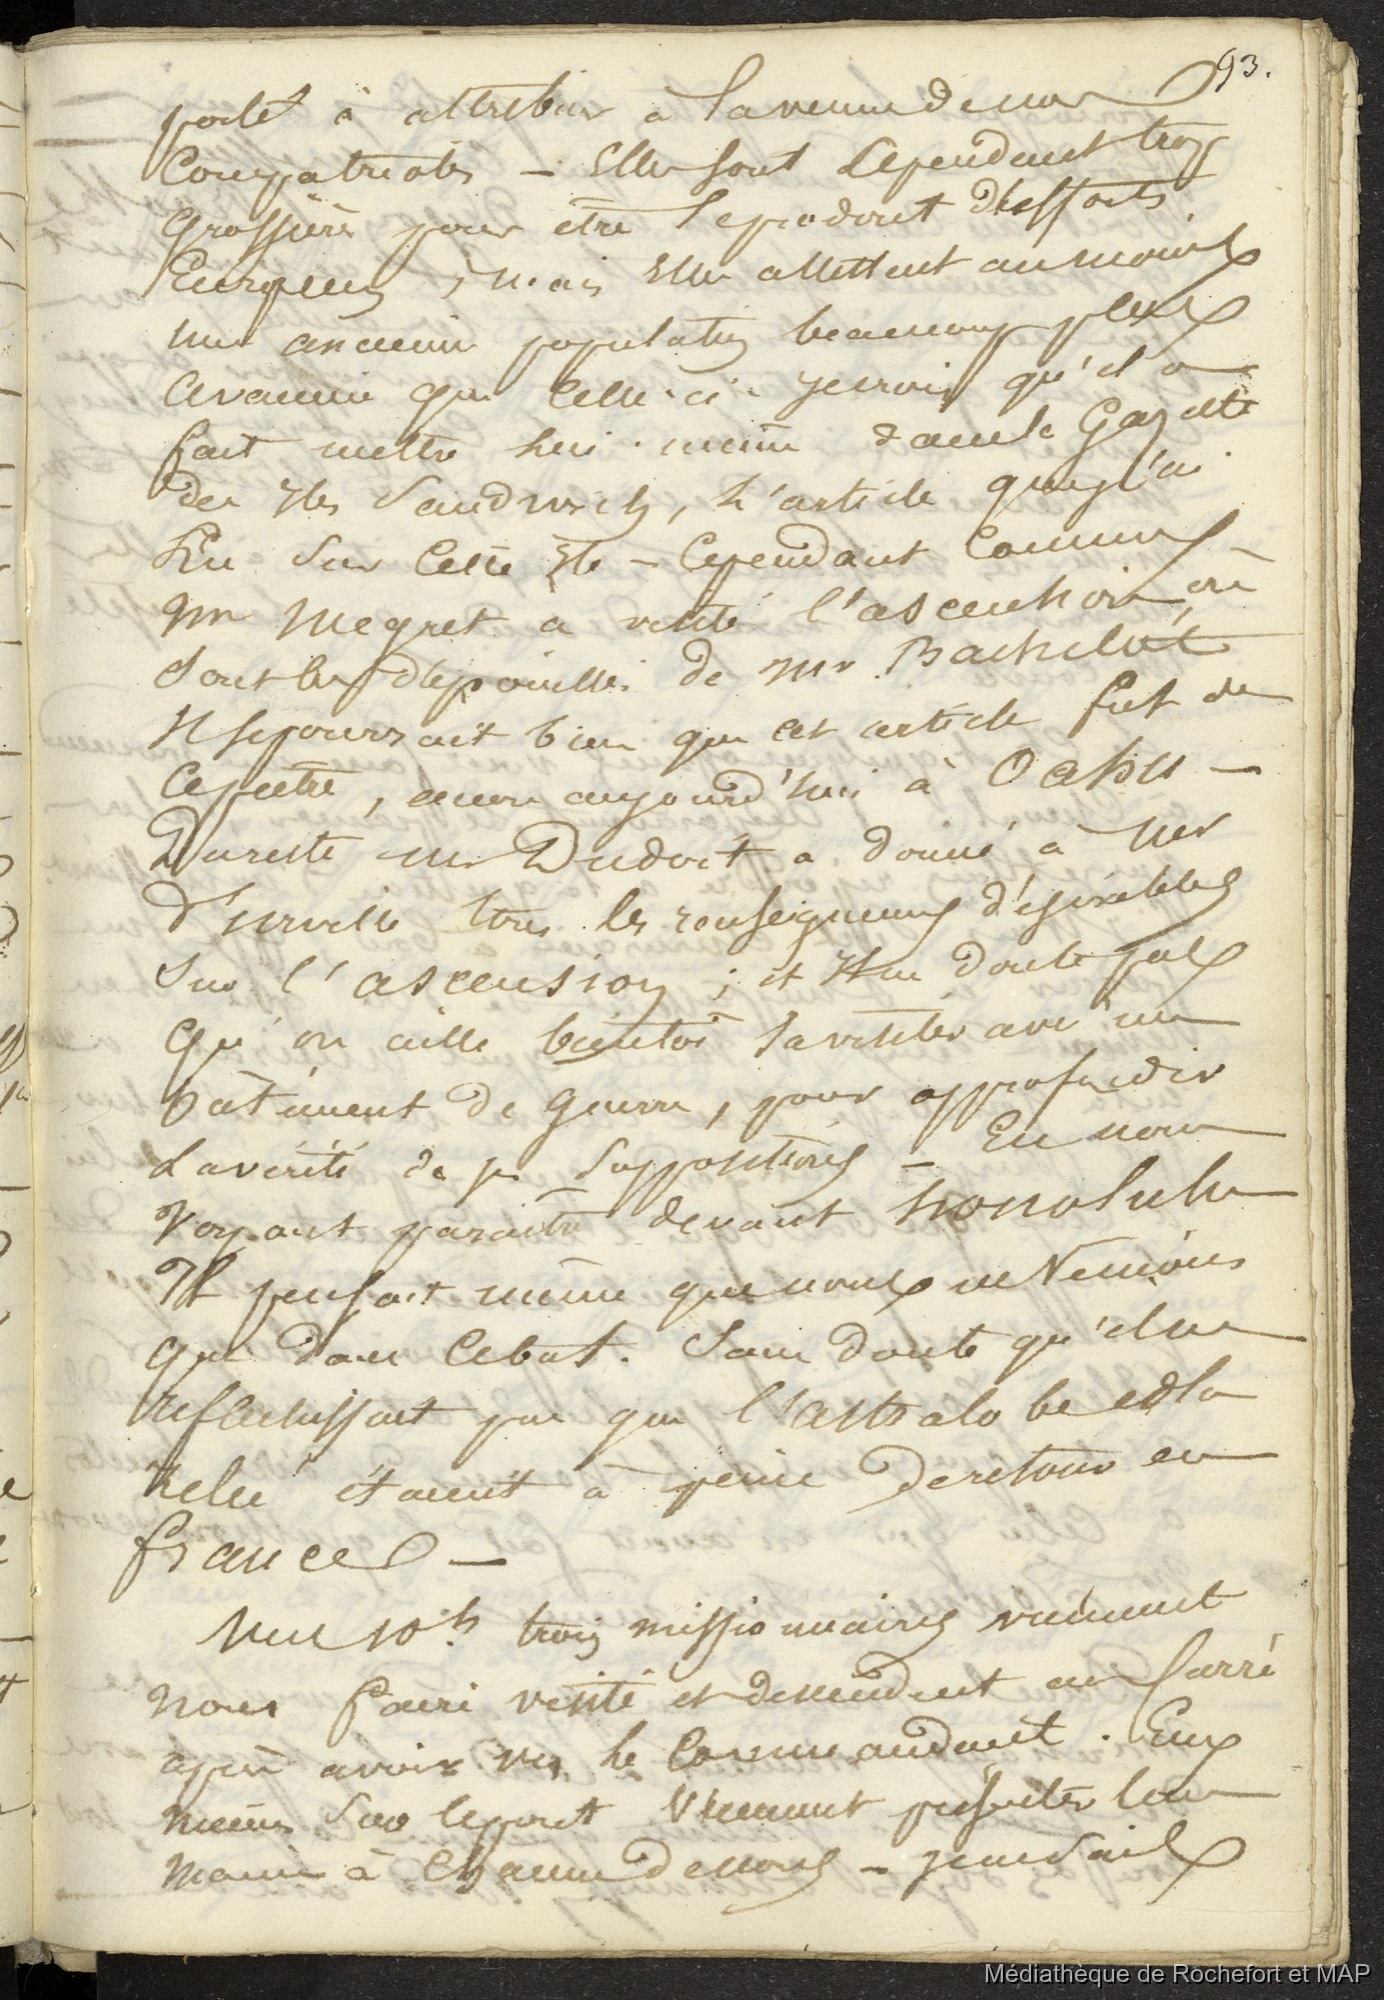 93.
porté à attribuer à la venue de nos
Compatriotes – Elles sont Cependant trop
grossières pour être le produit d'efforts
Européens ; mais Elles attestent au moins
une ancienne population beaucoup plus
avancée que celle-ci. Je crois qu'il a
fait mettre lui-même dans la Gazette
des Iles Sandwich, L'article que j'ai
Lu sur Cette Ile – Cependant Comme
Mr Megret a visité l'ascension, où
sont les dépouilles de Mr Bachelot
Il se pourrait bien que cet article fut de
Ce prêtre, encore aujourd'hui à Oahu –
Du reste Mr Dudoit a donné à Mr
d'Urville tous les renseignemens désirables
Sur l'ascension ; et Il ne doute pas
qu'on aille bientôt la visiter avec un
bâtiment de guerre, pour approfondir
La vérité de ses suppositions – En nous
Voyant paraître devant honolulu
Il pensait même que nous ne Venions
que dans Ce but. Sans doute qu'il ne
réfléchissait pas que l'astrolabe et la
Zélée étaient à peine de retour en
france –
Vers 10h trois missionnaires viennent
nous faire visite et descendent au Carré
après avoir vu le Commandant. Eux
mêmes sur le pont Viennent présenter leur
main à Chacun de nous – Je ne sais
Médiathèque de Rochefort et MAP